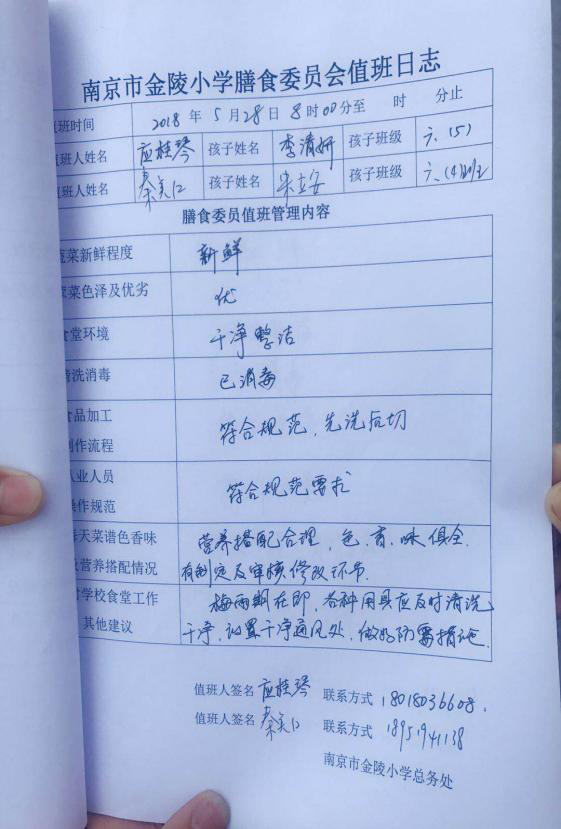 南京市金陵小学膳食委员会值班日志
值班时间 2018 年 5 月 28 日 8 时 00 分至 时 分止
班人姓名 应桂琴 孩子姓名 李清妍 孩子班级 六.(5)
班人姓名 孩子姓名 孩子班级 六.(4)班
膳食委员值班管理内容
菜新鲜程度 新鲜
菜色泽及优劣 优
食堂环境 干净整洁
清洗消毒 已消毒
食品加工
制作流程 符合规范,先洗后切
从业人员
操作规范 符合规范要求
每天菜谱色香味 营养搭配合理,色.香.味俱全.
及营养搭配情况 有制定及审核修改环节.
对学校食堂工作 梅雨期在即,各种用具应及时清洗
其他建议 干净,设置干净通风处,做好防霉措施.
值班人签名 应桂琴 联系方式 18018036608.
值班人签名 联系方式 18951941138
南京市金陵小学总务处